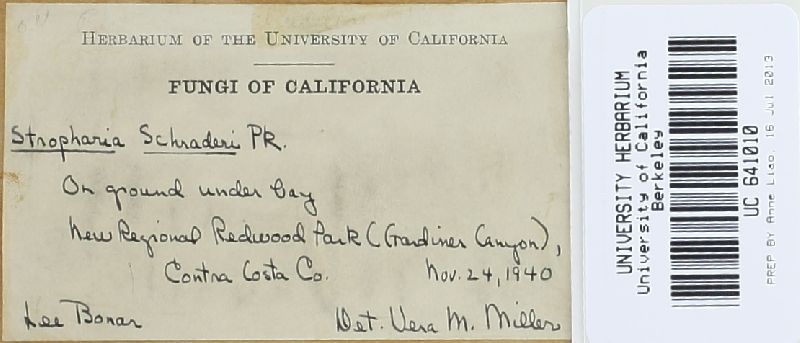 HERBARIUM OF THE UNIVERSITY OF CALIFORNIA
FUNGI OF CALIFORNIA
Stropharia Schraderi PK.
On ground under bay
New Regional Redwood Park (Gardiner Canyon),
Contra Costa Co. Nov. 24, 1940
Lee Bonar Det. Vera M. Miller
UNIVERSITY HERBARIUM
University of California
Berkeley
UC 641010
PREP BY Anne Liao, 16 Jul 2013